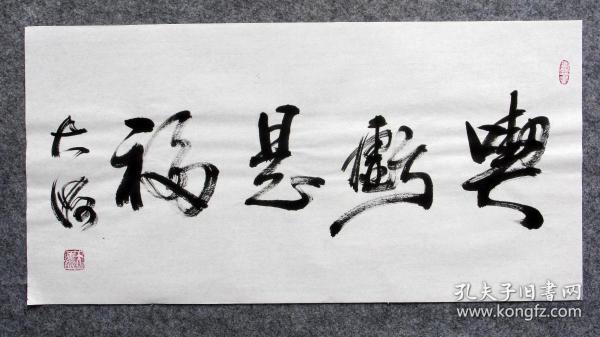 喫虧是福
孔夫子旧书网
www.kongfz.com